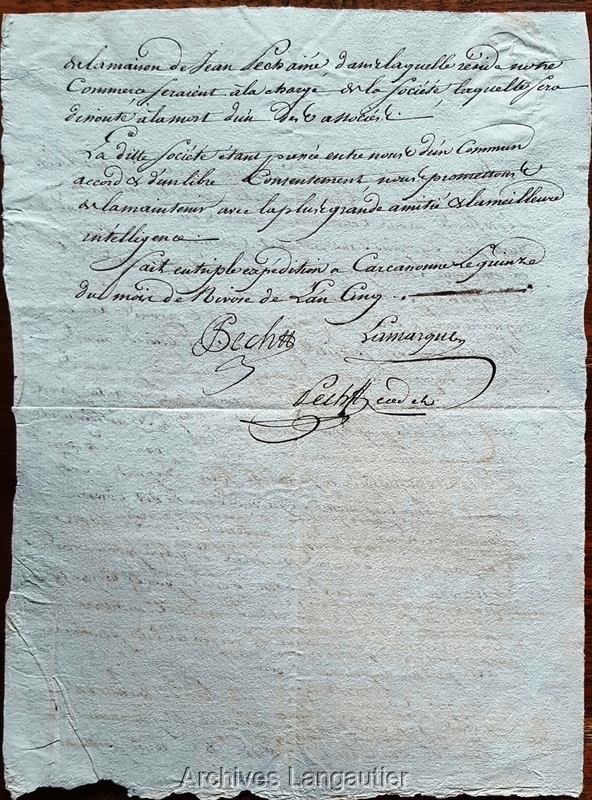 & la maison de Jean Pech ainé dans laquelle reside notre
Commerce seraient a la charge de la Société laquelle sera
disoute à la mort d'un des associés.
La ditte Société étant passée entre nous d'un Commun
accord & d'un libre Consentement nous promettons
de la maintenir avec la plus grande amitié & la meilleure
intelligence.
fait en triple expédition a Carcassonne Le quinze
du mois de Nivose de L'an Cinq.
Pech Lamarque
Pech cadet
Archives Langautier